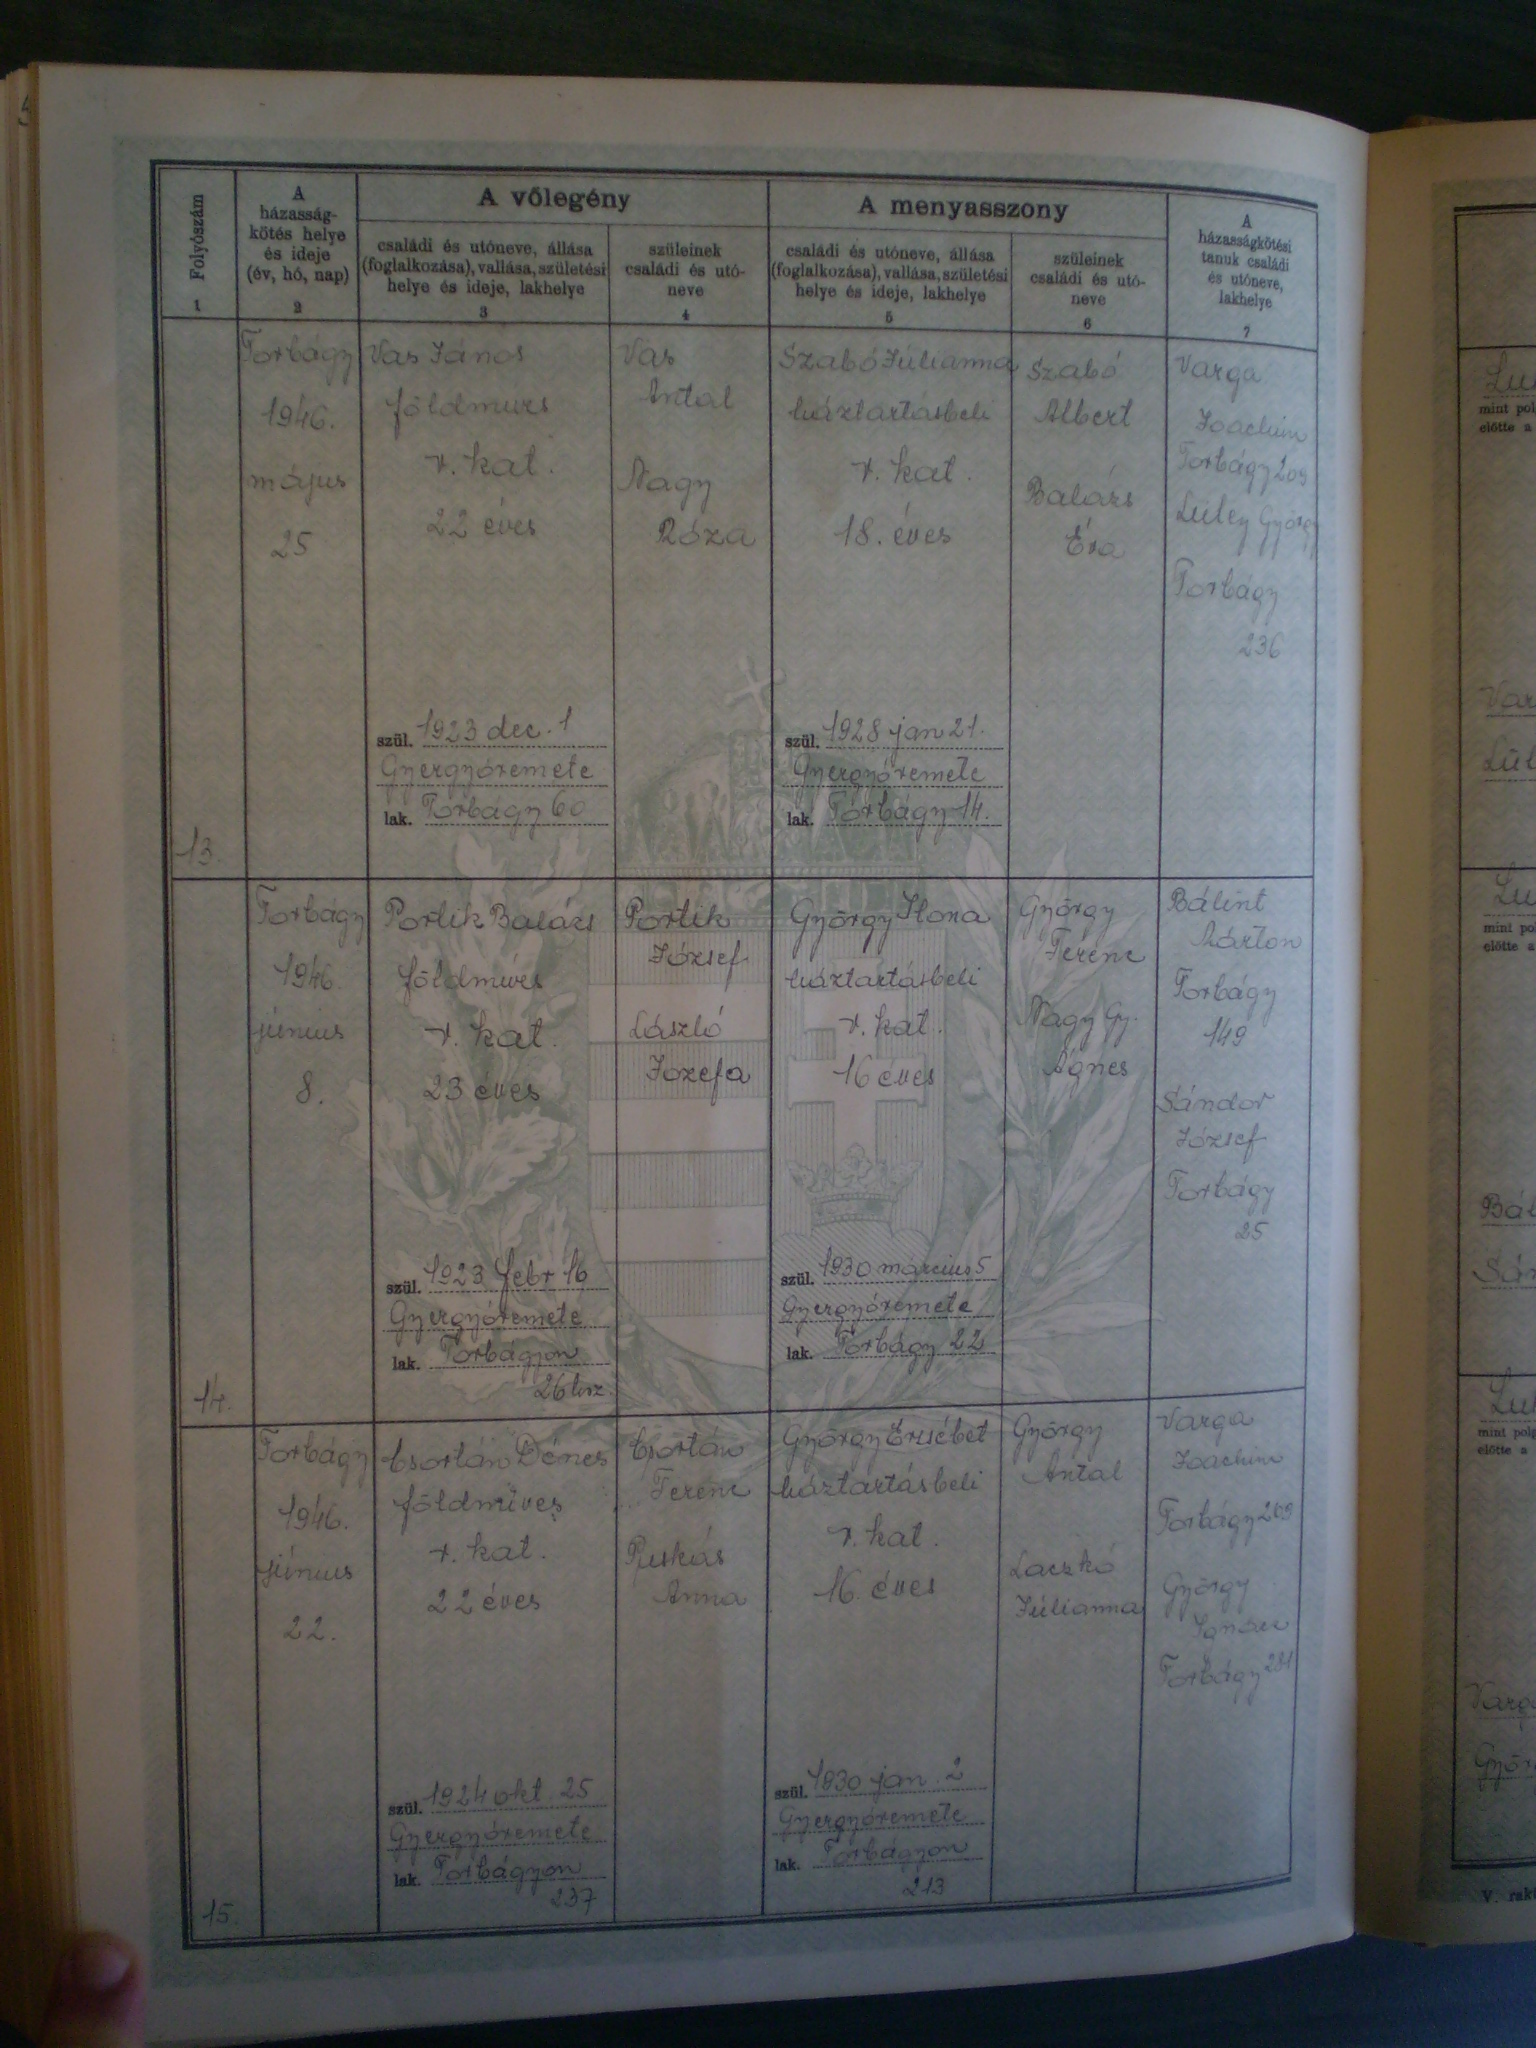 A vőlegény
A menyasszony
Folyószám
1
A
házasság-
kötés helye
és ideje
(év, hó, nap)
2
családi és utóneve, állása
(foglalkozása), vallása, születési
helye és ideje, lakhelye
3
szüleinek
családi és utó-
neve
4
családi és utóneve, állása
(foglalkozása), vallása, születési
helye és ideje, lakhelye
5
szüleinek
családi és utó-
neve
6
A
házasságkötési
tanuk családi
és utóneve,
lakhelye
7
13.
Torbágy
1946.
május
25
Vas János
földmuvs
r. kat.
22 éves
szül. 1923 dec. 1
Gyergyóremete
lak. Torbágy 60
Vas
Antal
Nagy
Róza
Szabó Júlianna
háztartásbeli
r. kat.
18. éves
szül. 1928 jan 21.
Gyergyóremete
lak. Torbágy 14.
Szabó
Albert
Balázs
Éva
Varga
Joachim
Torbágy 209
Luley György
Torbágy
236
14.
Torbágy
1946.
június
8.
Portik Balázs
földmüvs
r. kat.
23 éves
szül. 1923 febr 16
Gyergyóremete
lak. Torbágyon
26 hsz.
Portik
József
László
Józefa
György Ilona
háztartásbeli
r. kat.
16 éves
szül. 1930 március 5
Gyergyóremete
lak. Torbágy 22
György
Ferenc
Nagy Gy.
Ágnes
Bálint
Márton
Torbágy
149
Sándor
József
Torbágy
25
15.
Torbágy
1946.
június
22.
Csortán Dénes
földmüves
r. kat.
22 éves
szül. 1924 okt. 25
Gyergyóremete
lak. Torbágyon
237
Csortán
Ferenc
Puskás
Anna
György Erzsébet
háztartásbeli
r. kat.
16. éves
szül. 1930 jan. 2
Gyergyóremete
lak. Torbágyon
213
György
Antal
Laczkó
Júlianna
Varga
Joachim
Torbágy 209
György
Ignácz
Torbágy 281
mint pol
előtte a
mint po
előtte a
mint pol
előtte a